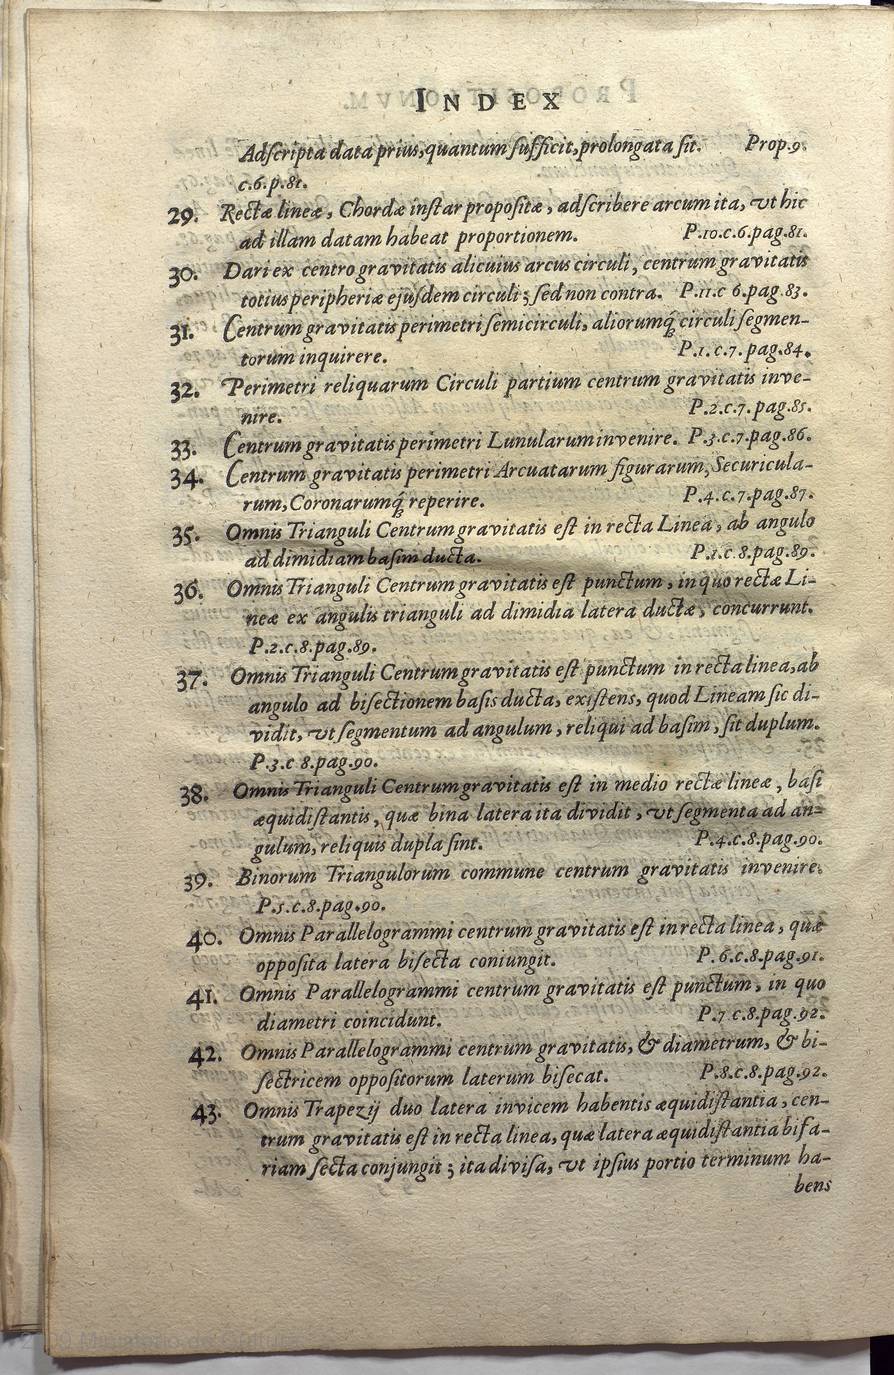 INDEX
Adſcripta data prius, quantum ſufficit, prolongata ſit. Prop.9.
c.6.p.81.
29. Rectæ lineæ, Chordæ inſtar propoſitæ, adſcribere arcum ita, vt hic
ad illam datam habeat proportionem. P.10.c.6.pag.81.
30. Dari ex centro gravitatis alicuius arcus circuli, centrum gravitatis
totius peripheriæ ejuſdem circuli; ſed non contra. P.11.c 6.pag.83.
31. Centrum gravitatis perimetri ſemicirculi, aliorumq́; circuli ſegmen-
torum inquirere. P.1.c.7.pag.84.
32. Perimetri reliquarum Circuli partium centrum gravitatis inve-
nire. P.2.c.7.pag.85.
33. Centrum gravitatis perimetri Lunularum invenire. P.3.c.7.pag.86.
34. Centrum gravitatis perimetri Arcuatarum figurarum, Securicula-
rum, Coronarumq́; reperire. P.4.c.7.pag.87.
35. Omnis Trianguli Centrum gravitatis eſt in recta Linea, ab angulo
ad dimidiam baſim ducta. P.1.c.8.pag.89.
36. Omnis Trianguli Centrum gravitatis eſt punctum, in quo rectæ Li-
neæ ex angulis trianguli ad dimidia latera ductæ, concurrunt.
P.2.c.8.pag.89.
37. Omnis Trianguli Centrum gravitatis eſt punctum in recta linea, ab
angulo ad biſectionem baſis ducta, exiſtens, quod Lineam ſic di-
vidit, vt ſegmentum ad angulum, reliqui ad baſim, ſit duplum.
P.3.c 8.pag.90.
38. Omnis Trianguli Centrum gravitatis eſt in medio rectæ lineæ, baſi
æquidiſtantis, quæ bina latera ita dividit, vt ſegmenta ad an-
gulum, reliquis dupla ſint. P.4.c.8.pag.90.
39. Binorum Triangulorum commune centrum gravitatis invenire.
P.5.c.8.pag.90.
40. Omnis Parallelogrammi centrum gravitatis eſt in recta linea, quæ
oppoſita latera biſecta coniungit. P.6.c.8.pag.91.
41. Omnis Parallelogrammi centrum gravitatis eſt punctum, in quo
diametri coincidunt. P.7 c.8.pag.92.
42. Omnis Parallelogrammi centrum gravitatis, & diametrum, & bi-
ſectricem oppoſitorum laterum biſecat. P.8.c.8.pag.92.
43. Omnis Trapezij duo latera invicem habentis æquidiſtantia, cen-
trum gravitatis eſt in recta linea, quæ latera æquidiſtantia bifa-
riam ſecta conjungit; ita diviſa, vt ipſius portio terminum ha-
bens